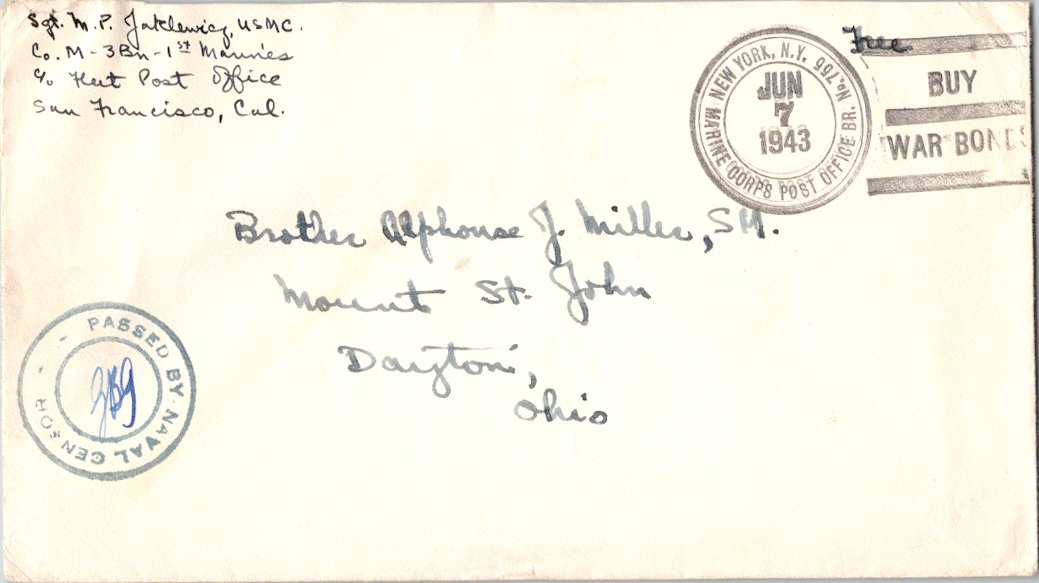 Sgt. M. P. Jaklewicz, USMC.
Co. M-3Bn-1st Marines
c/o Fleet Post Office
San Francisco, Cal.
Free
NEW YORK, N.Y. No. 765
MARINE CORPS POST OFFICE BR.
JUN
7
1943
BUY
WAR BONDS
Brother Alphonse J. Miller, S.M.
Mount St. John
Dayton,
Ohio
PASSED BY NAVAL CENSOR